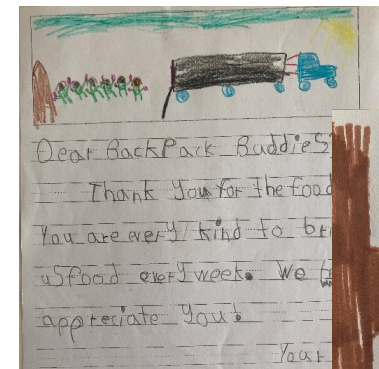 Dear BackPack Buddies
Thank You for the food
You are very kind to
us food every week. We
appreciate You!
Your